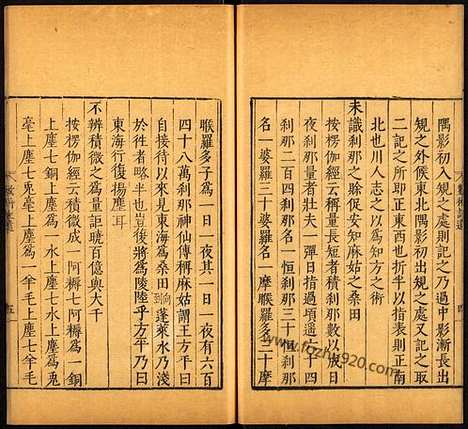 隅影初入規之處則記之乃過中影漸長出
規之外候東北隅影初出規之處又記之取
二記之所卽正東西也折半以指表則正南
北也川人志之以爲知方之術
未識刹那之賒促安知麻姑之桑田
按楞伽經云稱量長短者積刹那數以成日
夜刹那量者壯夫一彈日指過頃遥六十四
刹那二百四刹那名一恒刹那三十恒刹那
名一婆羅三十婆羅名一摩睺羅三十摩
睺羅多子爲一日一夜其一日一夜有六百
四十八萬刹那神仙傳稱麻姑謂王方平曰
自接待以來見東海爲桑田向蓬萊水乃淺
於徃者略半也豈復將爲陵陸乎方平乃曰
東海行復揚塵耳
不辨積微之爲量詎曉百億與大千
按楞伽經云積微成一阿耨七阿耨爲一銅
上塵七銅上塵爲一水上塵七水上塵爲兎
毫上塵七兎毫上塵爲一羊毛上塵七羊毛
五
www.fozhu920.com